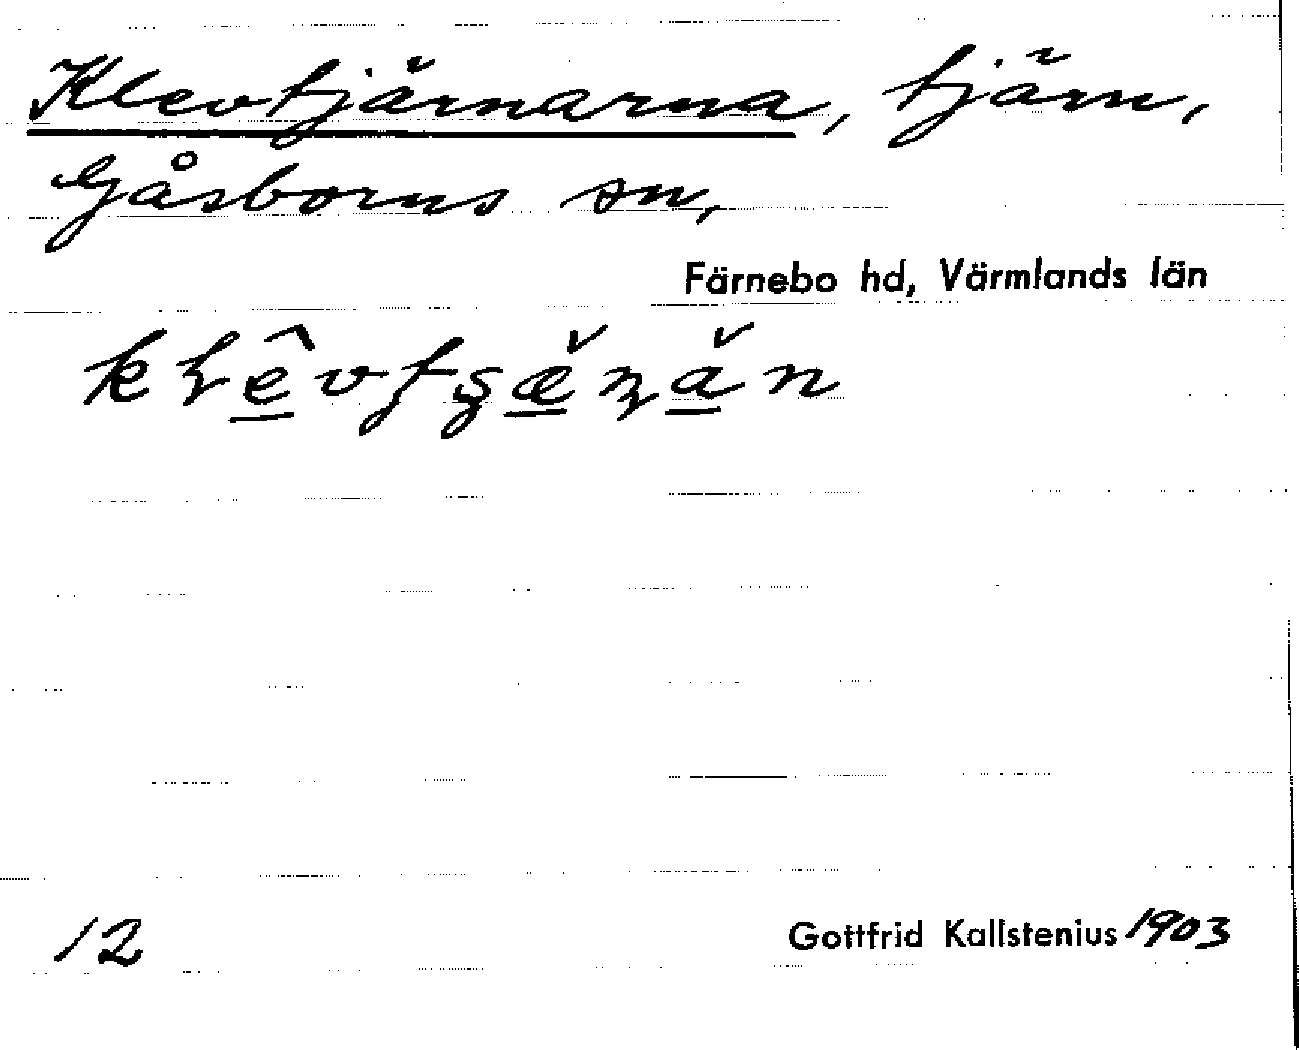 Klevtjärnarna, tjärn,
Gåsborns sn,
Färnebo hd, Värmlands län
12
Gottfrid Kallstenius 1903